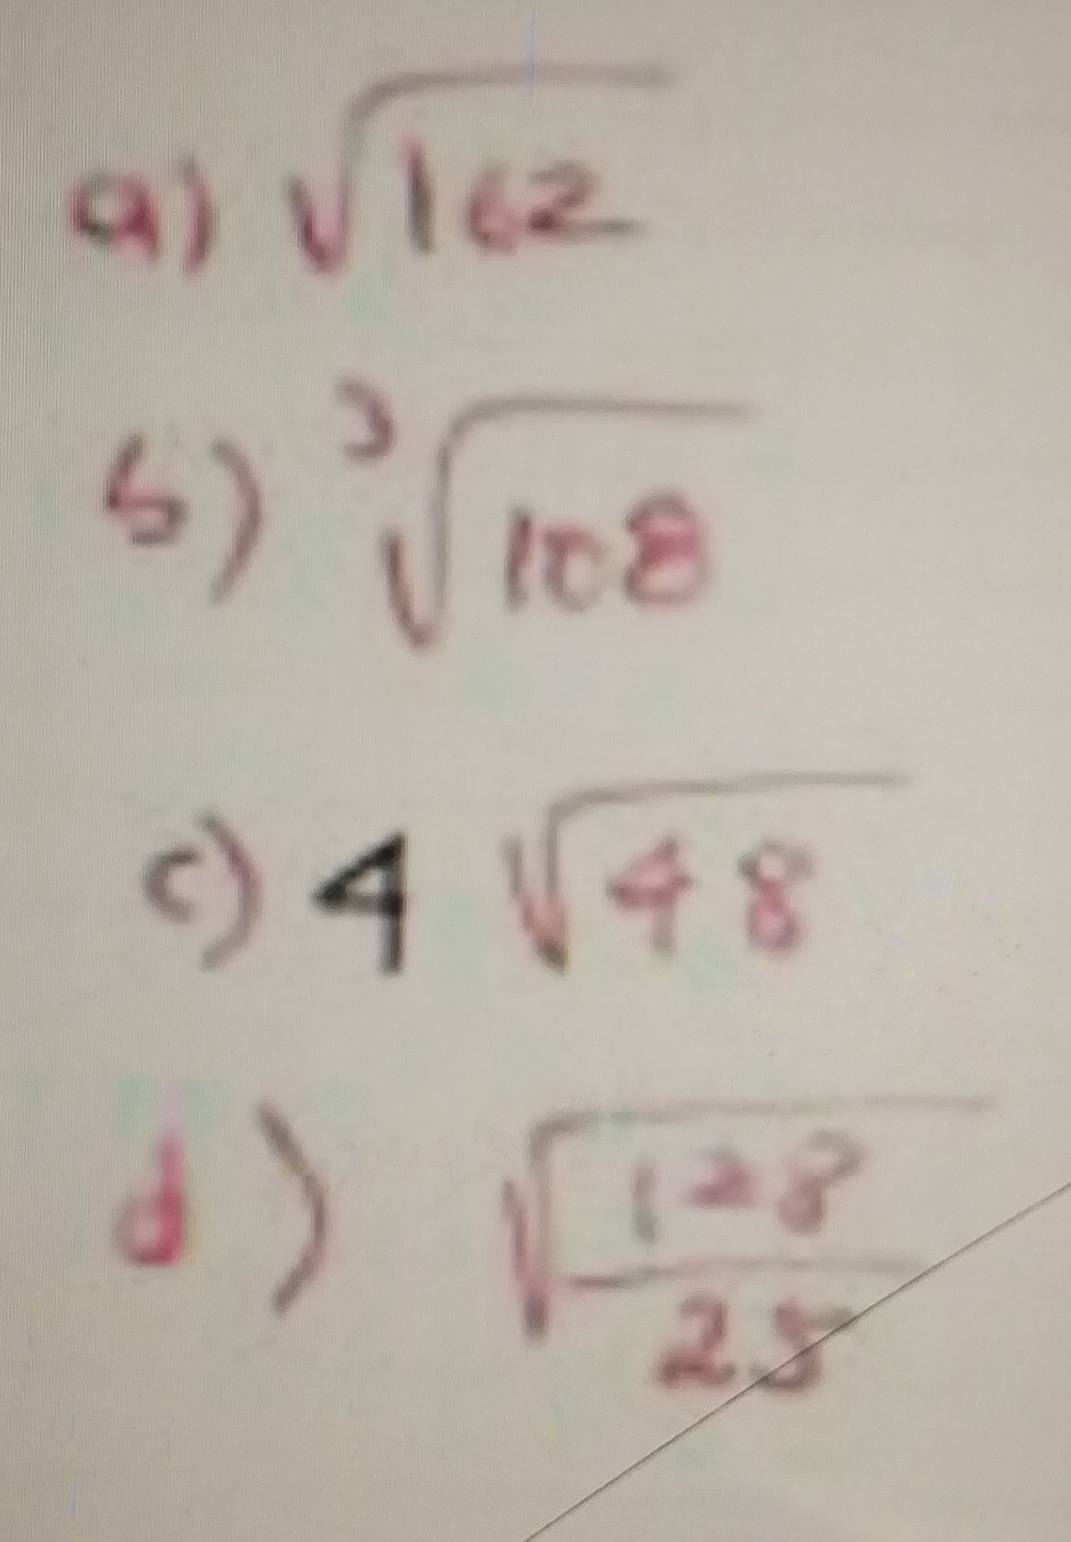 a) √162
b) ³√108
c) 4 √48
d) √128/25